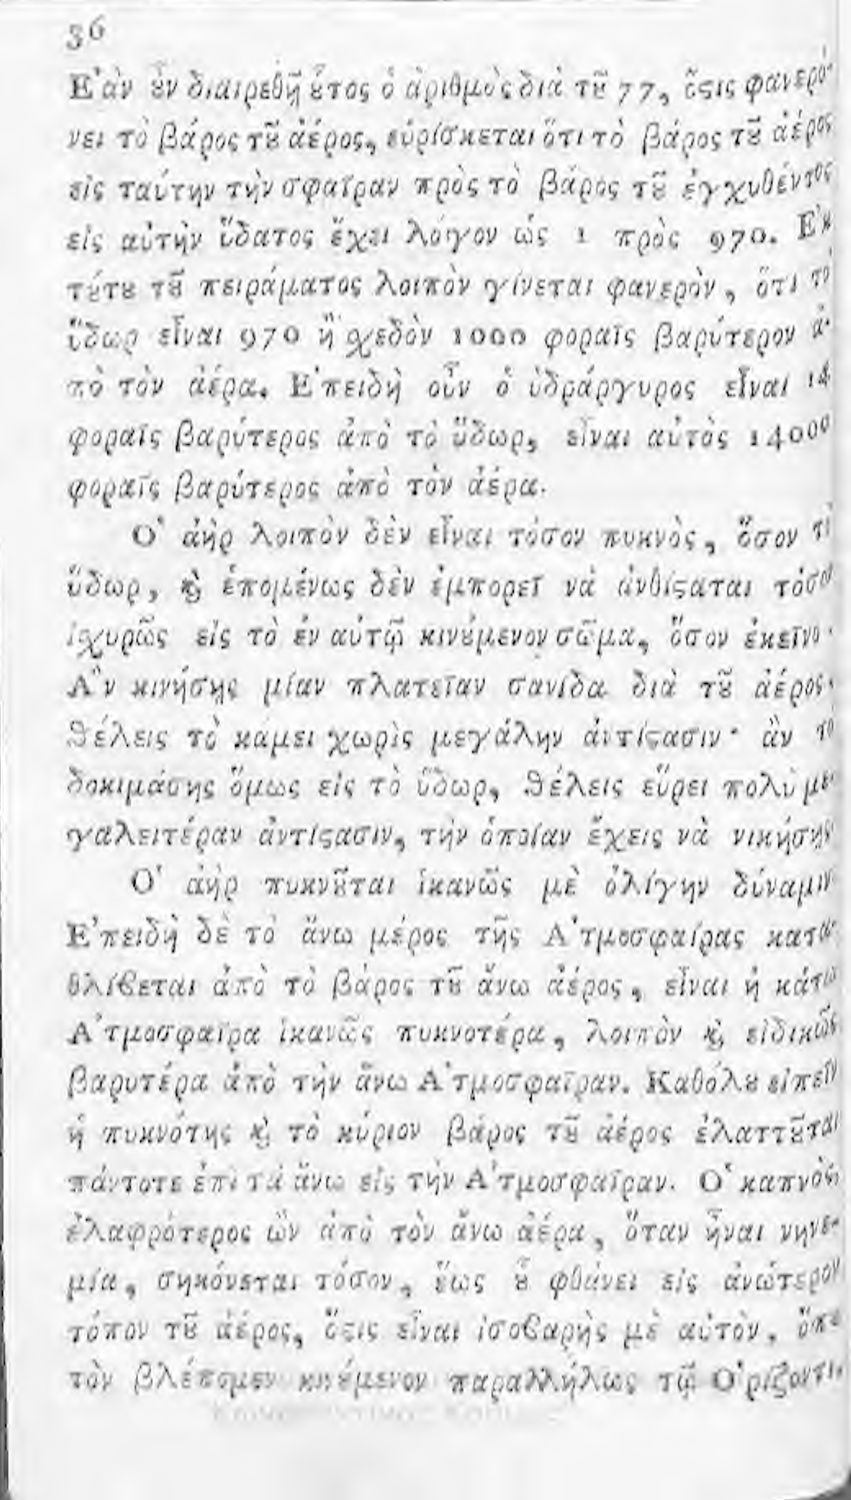 36
Ε᾿ὰν ȣ̓ν διαιρεθῇ ȣ̔τος ὁ ἀριθμὸς διὰ τȣ͂ 77, ὅϛις φανερό-
νει τὸ βάρος τȣ͂ ἀέρος, εὑρίσκεται ὅτι τὸ βάρος τȣ͂ ἀέρος
εἰς ταύτην τὴν σφαῖραν πρὸς τὸ βάρος τȣ͂ ἐγχυθέντος
εἰς αὐτὴν ὕδατος ἔχει λόγον ὡς 1 πρὸς 970. Ε᾿κ
τȣ́τȣ τȣ͂ πειράματος λοιπὸν γίνεται φανερὸν, ὅτι τὸ
ὕδωρ εἶναι 970 ἢ χεδὸν 1000 φοραῖς βαρύτερον ἀ-
πὸ τὸν ἀέρα. Ε᾿πειδὴ οὖν ὁ ὑδράργυρος εἶναι 14
φοραῖς βαρύτερος ἀπὸ τὸ ὕδωρ, εἶναι αὐτὸς 14000
φοραῖς βαρύτερος ἀπὸ τὸν ἀέρα.
Ο῾ ἀὴρ λοιπὸν δὲν εἶναι τόσον πυκνὸς, ὅσον τὸ
ὕδωρ, ϗ̀ ἑπομένως δὲν ἐμπορεῖ νὰ ἀνθίϛαται τόσον
ἰχυρῶς εἰς τὸ ἐν αὐτῷ κινȣ́μενον σῶμα, ὅσον ἐκεῖνο·
Α῎ν κινήσῃς μίαν πλατεῖαν σανίδα διὰ τȣ͂ ἀέρος·
θέλεις τὸ κάμει χωρὶς μεγάλην ἀντίϛασιν· ἂν τὸ
δοκιμάσῃς ὅμως εἰς τὸ ὕδωρ, θέλεις εὕρει πολὺ με-
γαλειτέραν ἀντίϛασιν, τὴν ὁποίαν ἔχεις νὰ νικήσῃς
Ο῾ ἀὴρ πυκνȣ͂ται ἱκανῶς μὲ ὀλίγην δύναμιν
Ε᾿πειδὴ δὲ τὸ ἄνω μέρος τῆς Α᾿τμοσφαίρας κατα-
θλίβεται ἀπὸ τὸ βάρος τȣ͂ ἄνω ἀέρος, εἶναι ἡ κάτω
Α᾿τμοσφαῖρα ἱκανῶς πυκνοτέρα, λοιπὸν ϗ̀ εἰδικῶς
βαρυτέρα ἀπὸ τὴν ἄνω Α᾿τμοσφαῖραν. Καθόλȣ εἰπεῖν
ἡ πυκνότης ϗ̀ τὸ κύριον βάρος τȣ͂ ἀέρος ἐλαττȣ͂ται
πάντοτε ἐπὶ τὰ ἄνω εἰς τὴν Α᾿τμοσφαῖραν. Ο῾ καπνὸς
ἐλαφρότερος ὢν ἀπὸ τὸν ἄνω ἀέρα, ὅταν ἦναι νηνε-
μία, σηκόνεται τόσον, ἕως ȣ̔͂ φθάνει εἰς ἀνώτερον
τόπον τȣ͂ ἀέρος, ὅϛις εἶναι ἰσοβαρὴς μὲ αὐτὸν, ὅπȣ
τὸν βλέπομεν κινȣ́μενον παραλλήλως τῷ Ο῾ρίζοντι.